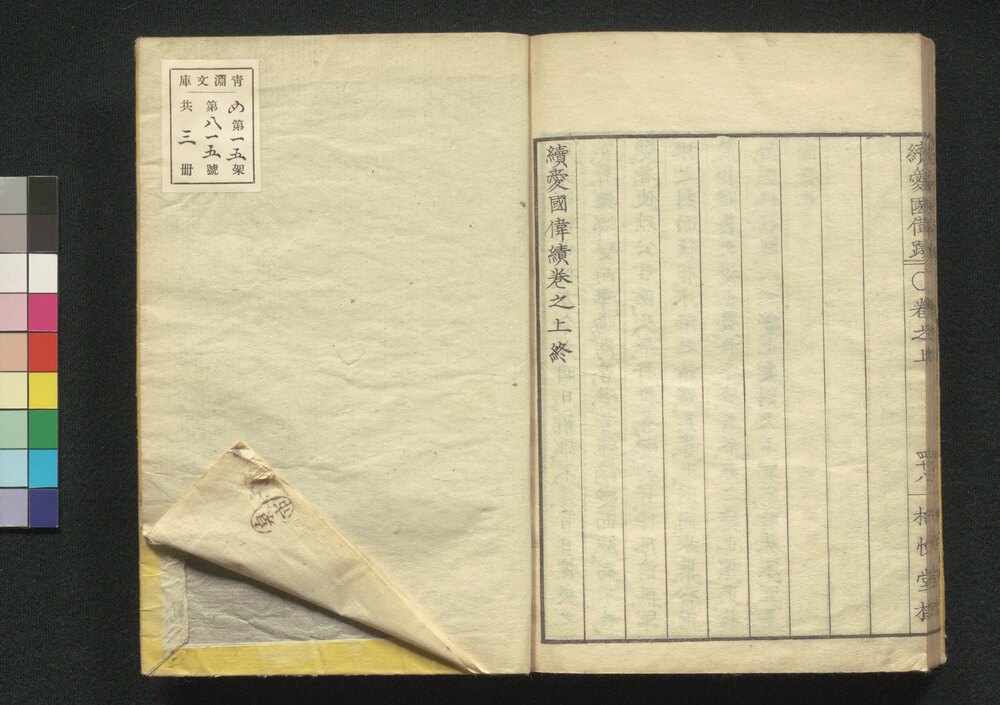 續愛國偉績卷之上終
續愛國偉績
〇卷之上
青淵文庫
め第一五架
第八一五號
共三冊